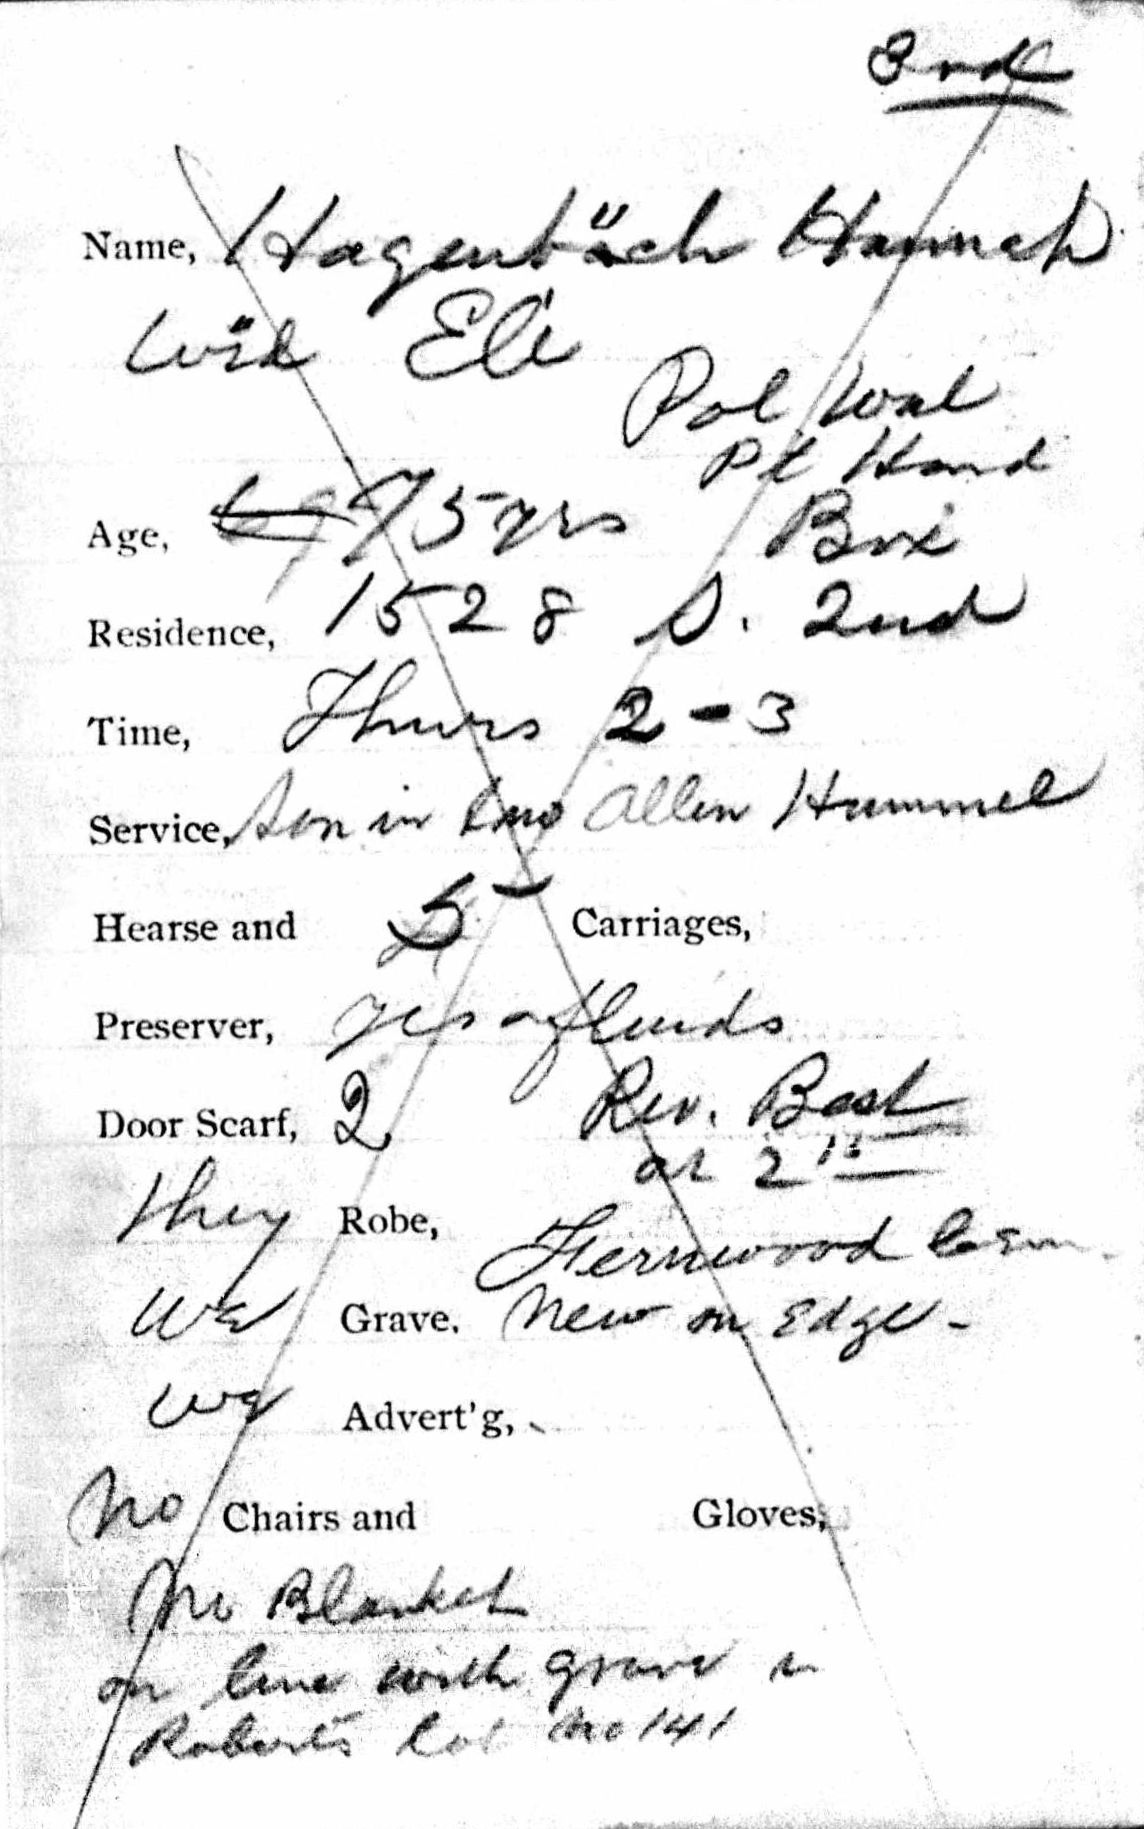 3rd
Name, Hagenbäch Hannah
Wid Eli
Pol Wal
Pl Hand
Age, 75 yrs Box
Residence, 1528 S. 2nd
Time, Thurs 2-3
Service, Son in law Allen Hummel
Hearse and 5 Carriages,
Preserver, yes fluids
Door Scarf, 2 Rev. Bast
at 2
they Robe, Fernwood Cem
We Grave. New on Edge -
We Advert'g,
No Chairs and Gloves,
No Blanket
on line with grave in
Roberts Lot No 141